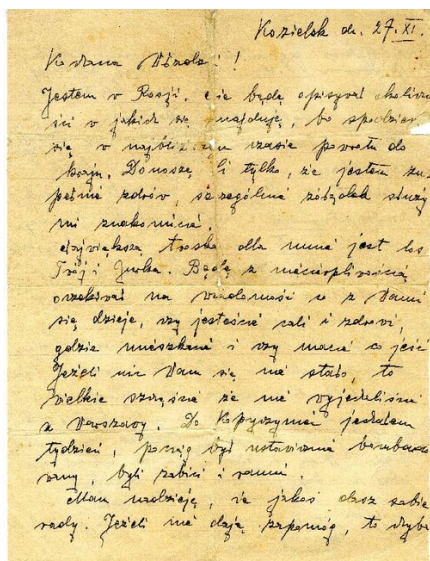 Kozielsk dn. 27.XI.
Kochana !
Jestem w Rosji, nie będę opisywał okoliczno
ści w jakich się znajduję, bo spodziewam
się w najbliższym czasie powrotu do
kraju. Donoszę Ci tylko, że jestem zu
pełnie zdrów, szczególnie żołądek służy
mi znakomicie.
Największą troską dla mnie jest los
Twój i Jurka. Będę z niecierpliwością
oczekiwał na wiadomość co z Wami
się dzieje, czy jesteście cali i zdrowi,
gdzie mieszkacie i czy macie co jeść
Jeżeli nic Wam się nie stało, to
wielkie szczęście że nie wyjechaliście
z Warszawy. Do Kopyczyniec jechałem
tydzień, pociąg był ustawicznie bombardo
wany, byli zabici i ranni.
Mam nadzieję, że jakoś dasz sobie
rady. Jeżeli nie dają zapomóg, to